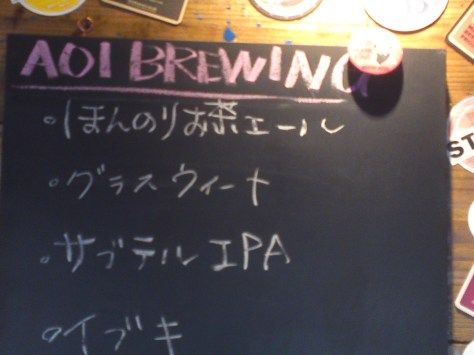 AOI BREWING
・ほんのりお茶エール
・グラスウィート
・サブテルIPA
・イブキ
ST